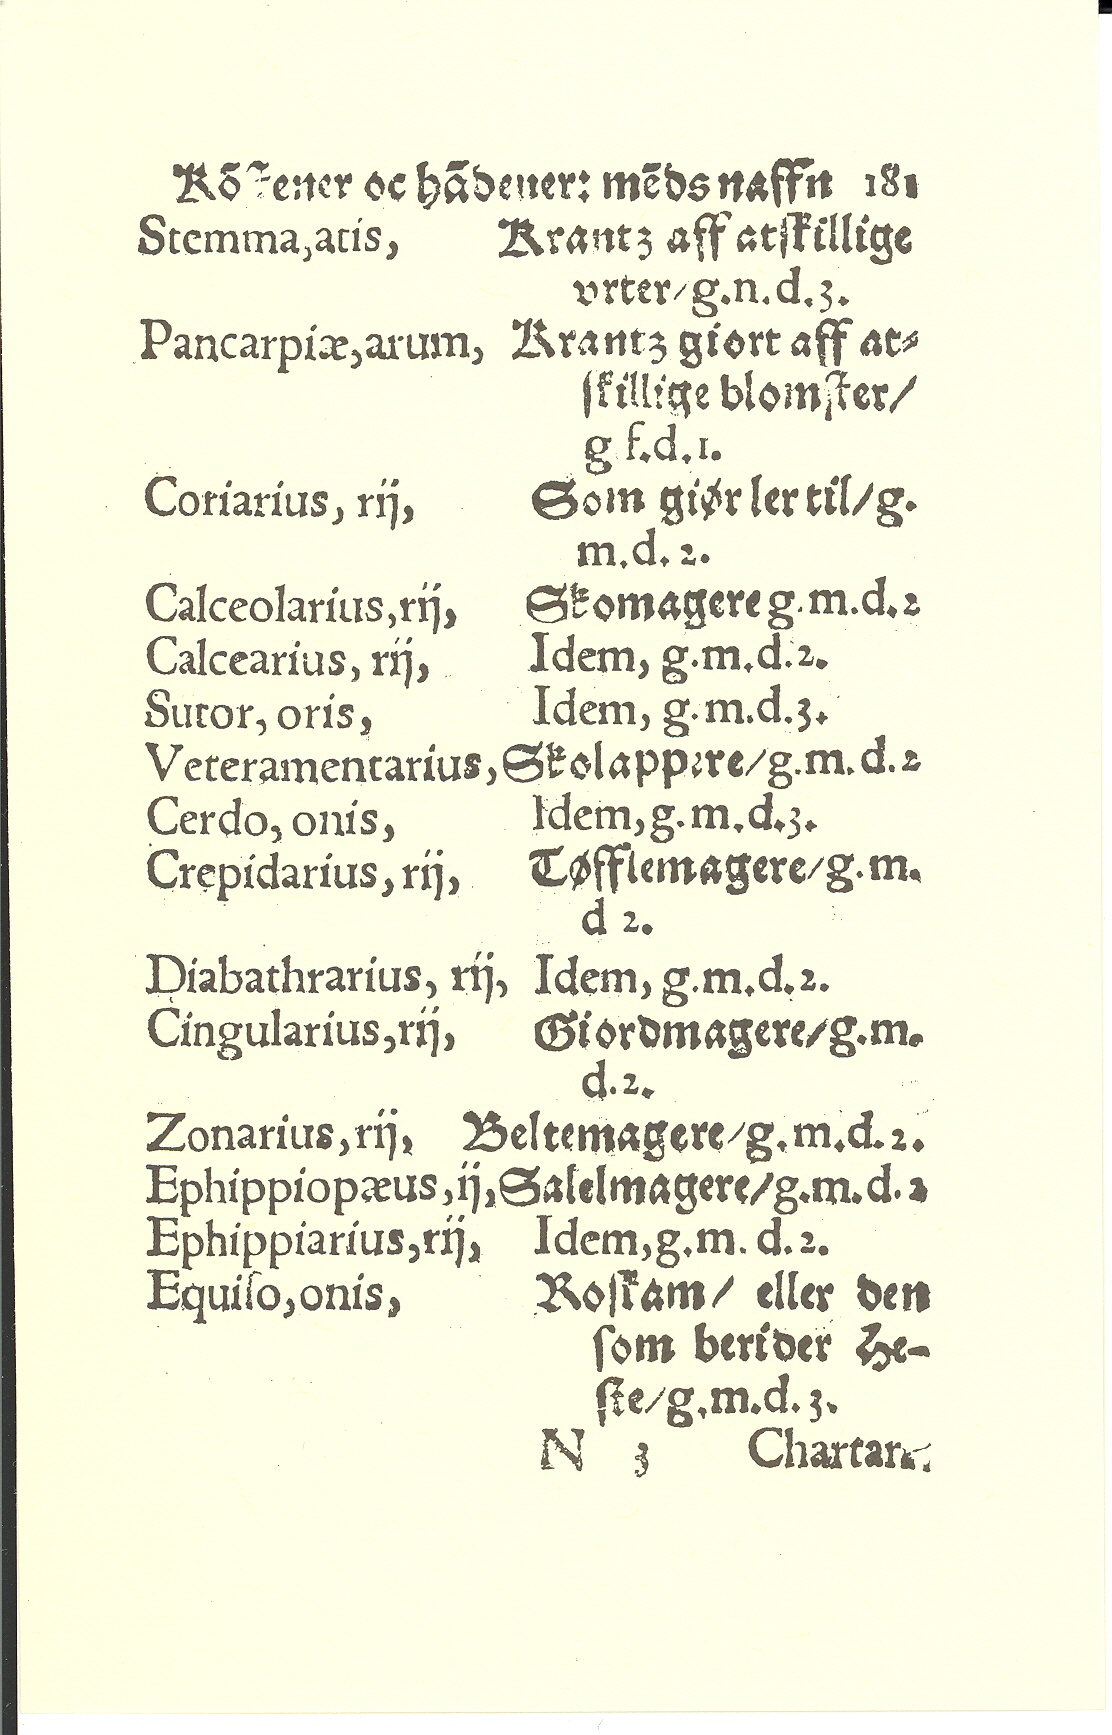 oc hādeuer: mēds naffn 181
Stemma,atis, Krantz aff atskillige
vrter/g.n.d.3.
Pancarpiæ,arum, Krantz giort aff at⸗
skillige blomster/
g f.d.1.
Coriarius, rij, Som giør ler til/g.
m.d.2.
Calceolarius,rij, Skomagere g.m.d.2
Calcearius, rij, Idem, g.m.d.2.
Sutor, oris, Idem, g.m.d.3.
Veteramentarius, Skolappere/g.m.d.2
Cerdo, onis, Idem,g.m.d.3.
Crepidarius,rij, Tøfflemagere/g.m.
d 2.
Diabathrarius, rij, Idem, g.m.d.2.
Cingularius,rij, Giordmagere/g.m.
d.2.
Zonarius,rij, Beltemagere/g.m.d.2.
Ephippiopæus,ij, Salelmagere/g.m.d.2
Ephippiarius,rij, Idem,g.m.d.2.
Equiſo,onis, Roſkam/ eller den
ſom berider He-
ſte/g.m.d.3.
N 3